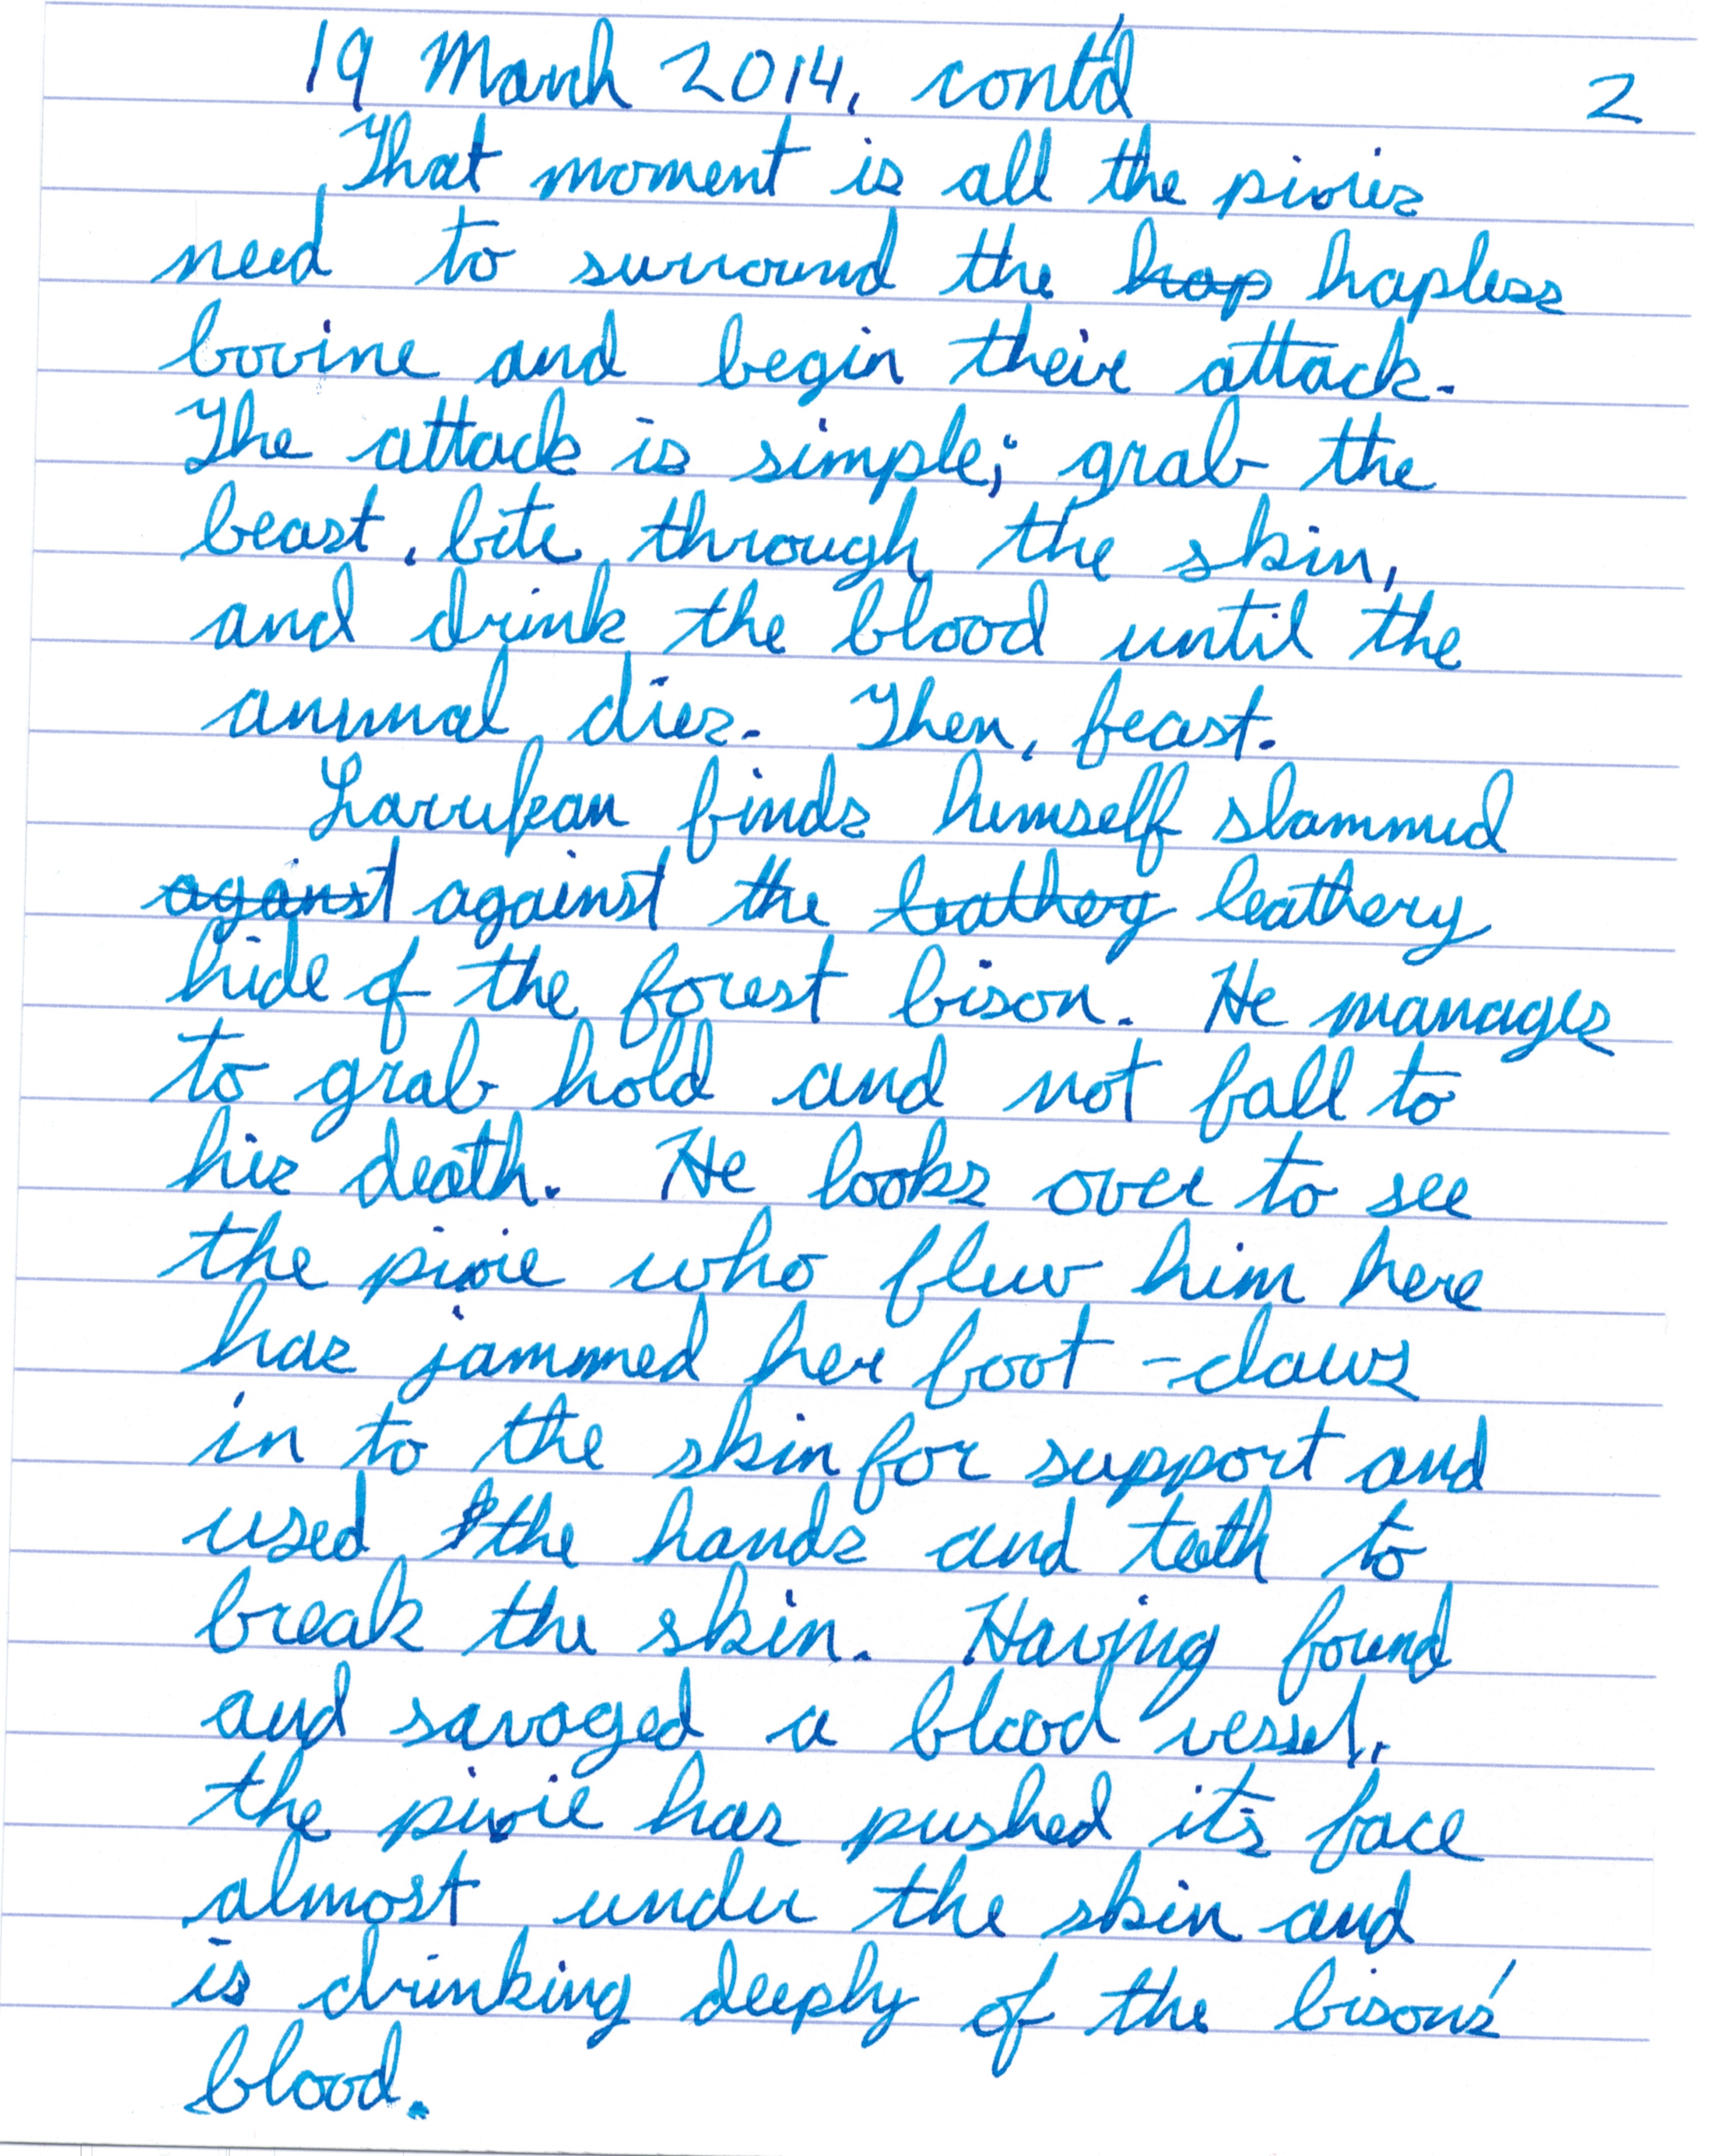 19 March 2014, cont'd 2
That moment is all the pixies
need to surround the hap hapless
bovine and begin their attack.
The attack is simple; grab the
beast, bite through the skin,
and drink the blood until the
animal dies. Then, feast.
finds himself slammed
against against the leathery leathery
hide of the forest bison. He manages
to grab hold and not fall to
his death. He looks over to see
the pixie who flew him here
has jammed her foot-claws
in to the skin for support and
used the hands and teeth to
break the skin. Having found
and savaged a blood vessel,
the pixie has pushed its face
almost under the skin and
is drinking deeply of the bison's
blood.